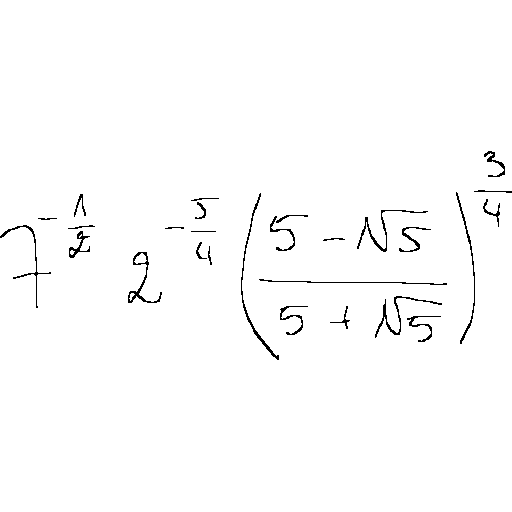 7^{-\frac{1}{2}} 2^{-\frac{5}{4}} \left( \frac{5 - \sqrt{5}}{5 + \sqrt{5}} \right)^{\frac{3}{4}}